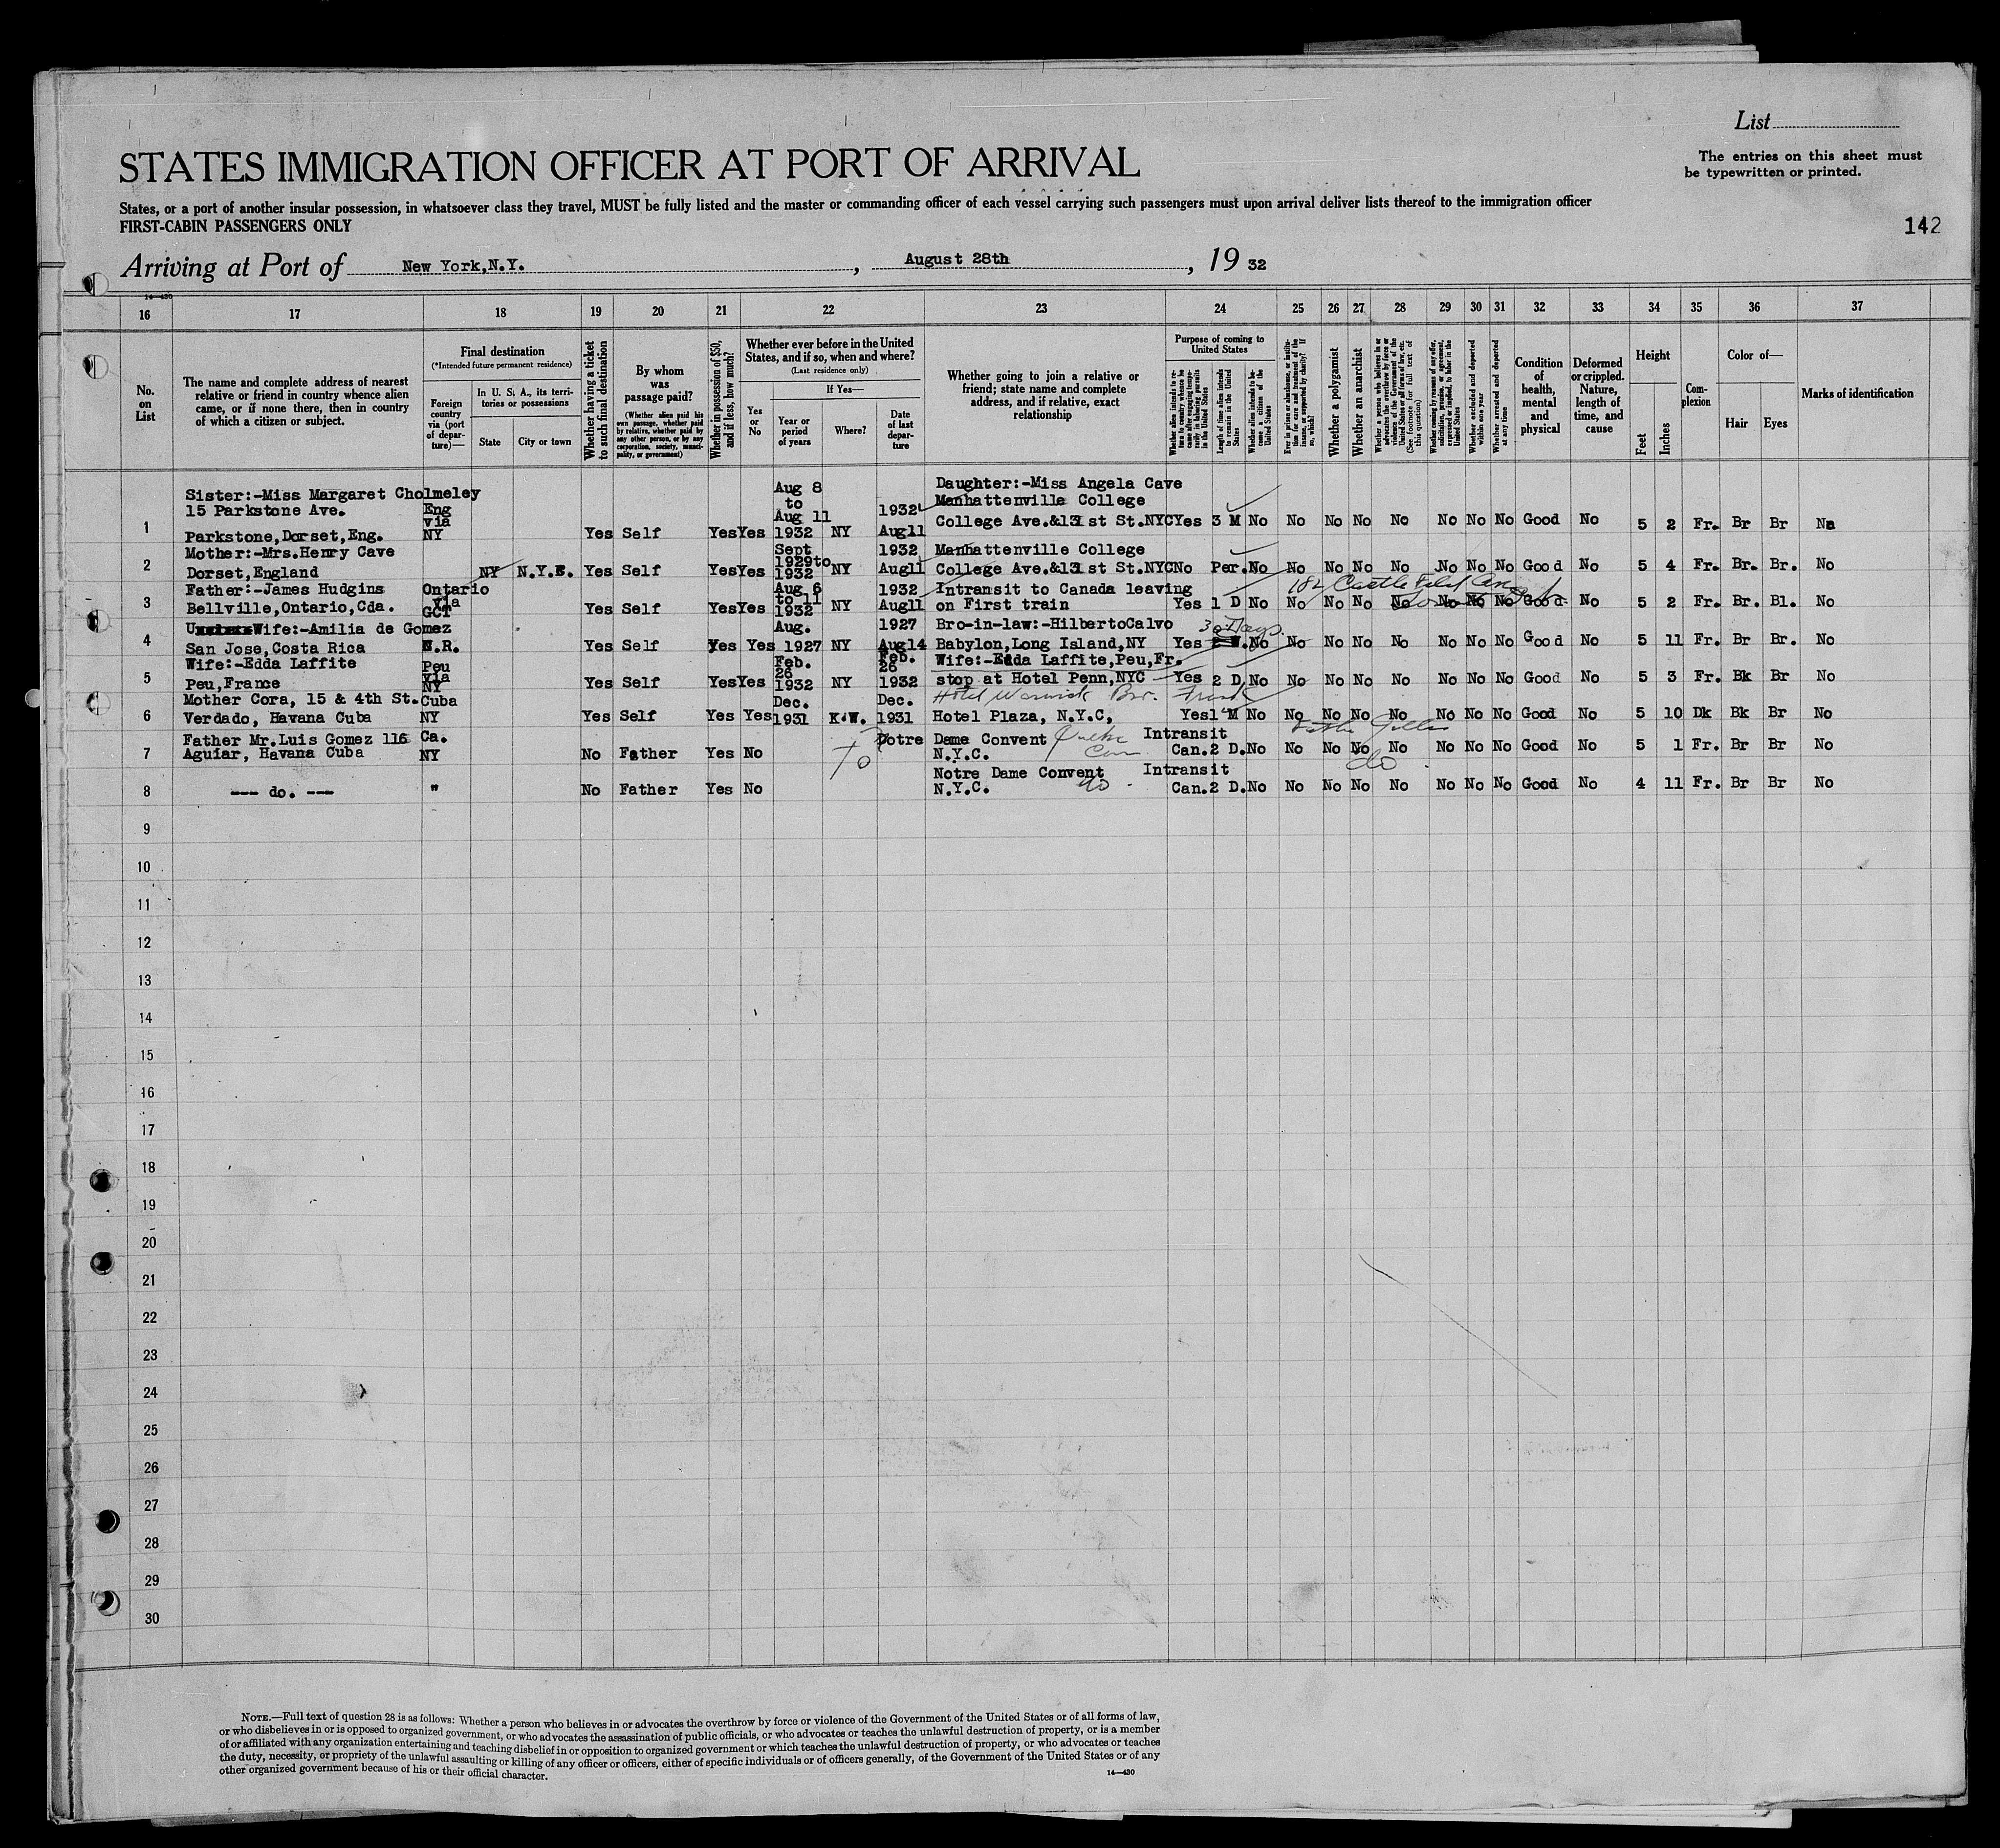 List
STATES IMMIGRATION OFFICER AT PORT OF ARRIVAL
The entries on this sheet must
be typewritten or printed.
States, or a port of another insular possession, in whatsoever class they travel, MUST be fully listed and the master or commanding officer of each vessel carrying such passengers must upon arrival deliver lists thereof to the immigration officer
FIRST-CABIN PASSENGERS ONLY
142
Arriving at Port of New York,N.Y. , August 28th , 19 32
14—430
16 17 18 19 20 21 22 23 24 25 26 27 28 29 30 31 32 33 34 35 36 37
No. on List
The name and complete address of nearest
relative or friend in country whence alien
came, or if none there, then in country
of which a citizen or subject.
Final destination
(*Intended future permanent residence)
Foreign country via (port of departure)—
In U. S. A., its territories or possessions
State
City or town
Whether having a ticket to such final destination
By whom was passage paid?
(Whether alien paid his own passage, whether paid by relative, whether paid by any other person, or by any corporation, society, municipality, or government)
Whether in possession of $50, and if less, how much?
Whether ever before in the United States, and if so, when and where?
(Last residence only)
If Yes—
Yes or No
Year or period of years
Where?
Date of last departure
Whether going to join a relative or
friend; state name and complete
address, and if relative, exact
relationship
Purpose of coming to United States
Whether alien intends to return to country whence he came after engaging temporarily in laboring pursuits in the United States
Length of time alien intends to remain in the United States
Whether alien intends to become a citizen of the United States
Ever in prison or almshouse, or institution for care and treatment of the insane, or supported by charity? If so, which?
Whether a polygamist
Whether an anarchist
Whether a person who believes in or advocates the overthrow by force or violence of the Government of the United States or all forms of law, etc. (See footnote for full text of this question)
Whether coming by reason of any offer, solicitation, promise, or agreement, expressed or implied, to labor in the United States
Whether excluded and deported within one year
Whether arrested and deported at any time
Condition of health, mental and physical
Deformed or crippled. Nature, length of time, and cause
Height
Feet
Inches
Complexion
Color of—
Hair
Eyes
Marks of identification
Sister:-Miss Margaret Cholmeley Aug 8 Daughter:-Miss Angela Cave
15 Parkstone Ave. Eng to 1932 Manhattenville College
via Aug 11 College Ave.&131st St.NYC Yes 3 M No No No No No No No No Good No 5 2 Fr. Br Br No
1 Parkstone,Dorset,Eng. NY Yes Self Yes Yes 1932 NY Aug11
Mother:-Mrs.Henry Cave Sept 1932 Manhattenville College
1929to
2 Dorset,England NY N.Y.S. Yes Self Yes Yes 1932 NY Aug11 College Ave.&131st St.NYC No Per. No No No No No No No No Good No 5 4 Fr. Br. Br. No
Father:-James Hudgins Ontario Aug 6 1932 Intransit to Canada leaving 182 Castle
via to 11
3 Bellville,Ontario,Cda. GCT Yes Self Yes Yes 1932 NY Aug11 on First train Yes 1 D No No No No No No No No Good No 5 2 Fr. Br. Bl. No
Wife:-Amilia de Gomez Aug. 1927 Bro-in-law:-HilbertoCalvo 30 Days
4 San Jose,Costa Rica C.R. Yes Self Yes Yes 1927 NY Aug14 Babylon,Long Island,NY Yes No No No No No No No No Good No 5 11 Fr. Br Br. No
Wife:-Edda Laffite Peu Feb. Feb. Wife:-Edda Laffite,Peu,Fr.
via 26 26
5 Peu,France NY Yes Self Yes Yes 1932 NY 1932 stop at Hotel Penn,NYC Yes 2 D No No No No No No No No Good No 5 3 Fr. Bk Br No
Mother Cora, 15 & 4th St. Cuba Dec. Dec. Hotel Warwick
6 Verdado, Havana Cuba NY Yes Self Yes Yes 1931 K.W. 1931 Hotel Plaza, N.Y.C, Yes 1 M No No No No No No No No Good No 5 10 Dk Bk Br No
Father Mr.Luis Gomez 116 Ca. Notre Dame Convent Intransit
7 Aguiar, Havana Cuba NY No Father Yes No N.Y.C. Can. 2 D. No No No No No No No No Good No 5 1 Fr. Br Br No
do
Notre Dame Convent Intransit
8 --- do. --- " No Father Yes No N.Y.C. do. Can. 2 D. No No No No No No No No Good No 4 11 Fr. Br Br No
9
10
11
12
13
14
15
16
17
18
19
20
21
22
23
24
25
26
27
28
29
30
NOTE.—Full text of question 28 is as follows: Whether a person who believes in or advocates the overthrow by force or violence of the Government of the United States or of all forms of law,
or who disbelieves in or is opposed to organized government, or who advocates the assassination of public officials, or who advocates or teaches the unlawful destruction of property, or is a member
of or affiliated with any organization entertaining and teaching disbelief in or opposition to organized government or which teaches the unlawful destruction of property, or who advocates or teaches
the duty, necessity, or propriety of the unlawful assaulting or killing of any officer or officers, either of specific individuals or of officers generally, of the Government of the United States or of any
other organized government because of his or their official character.
14—430